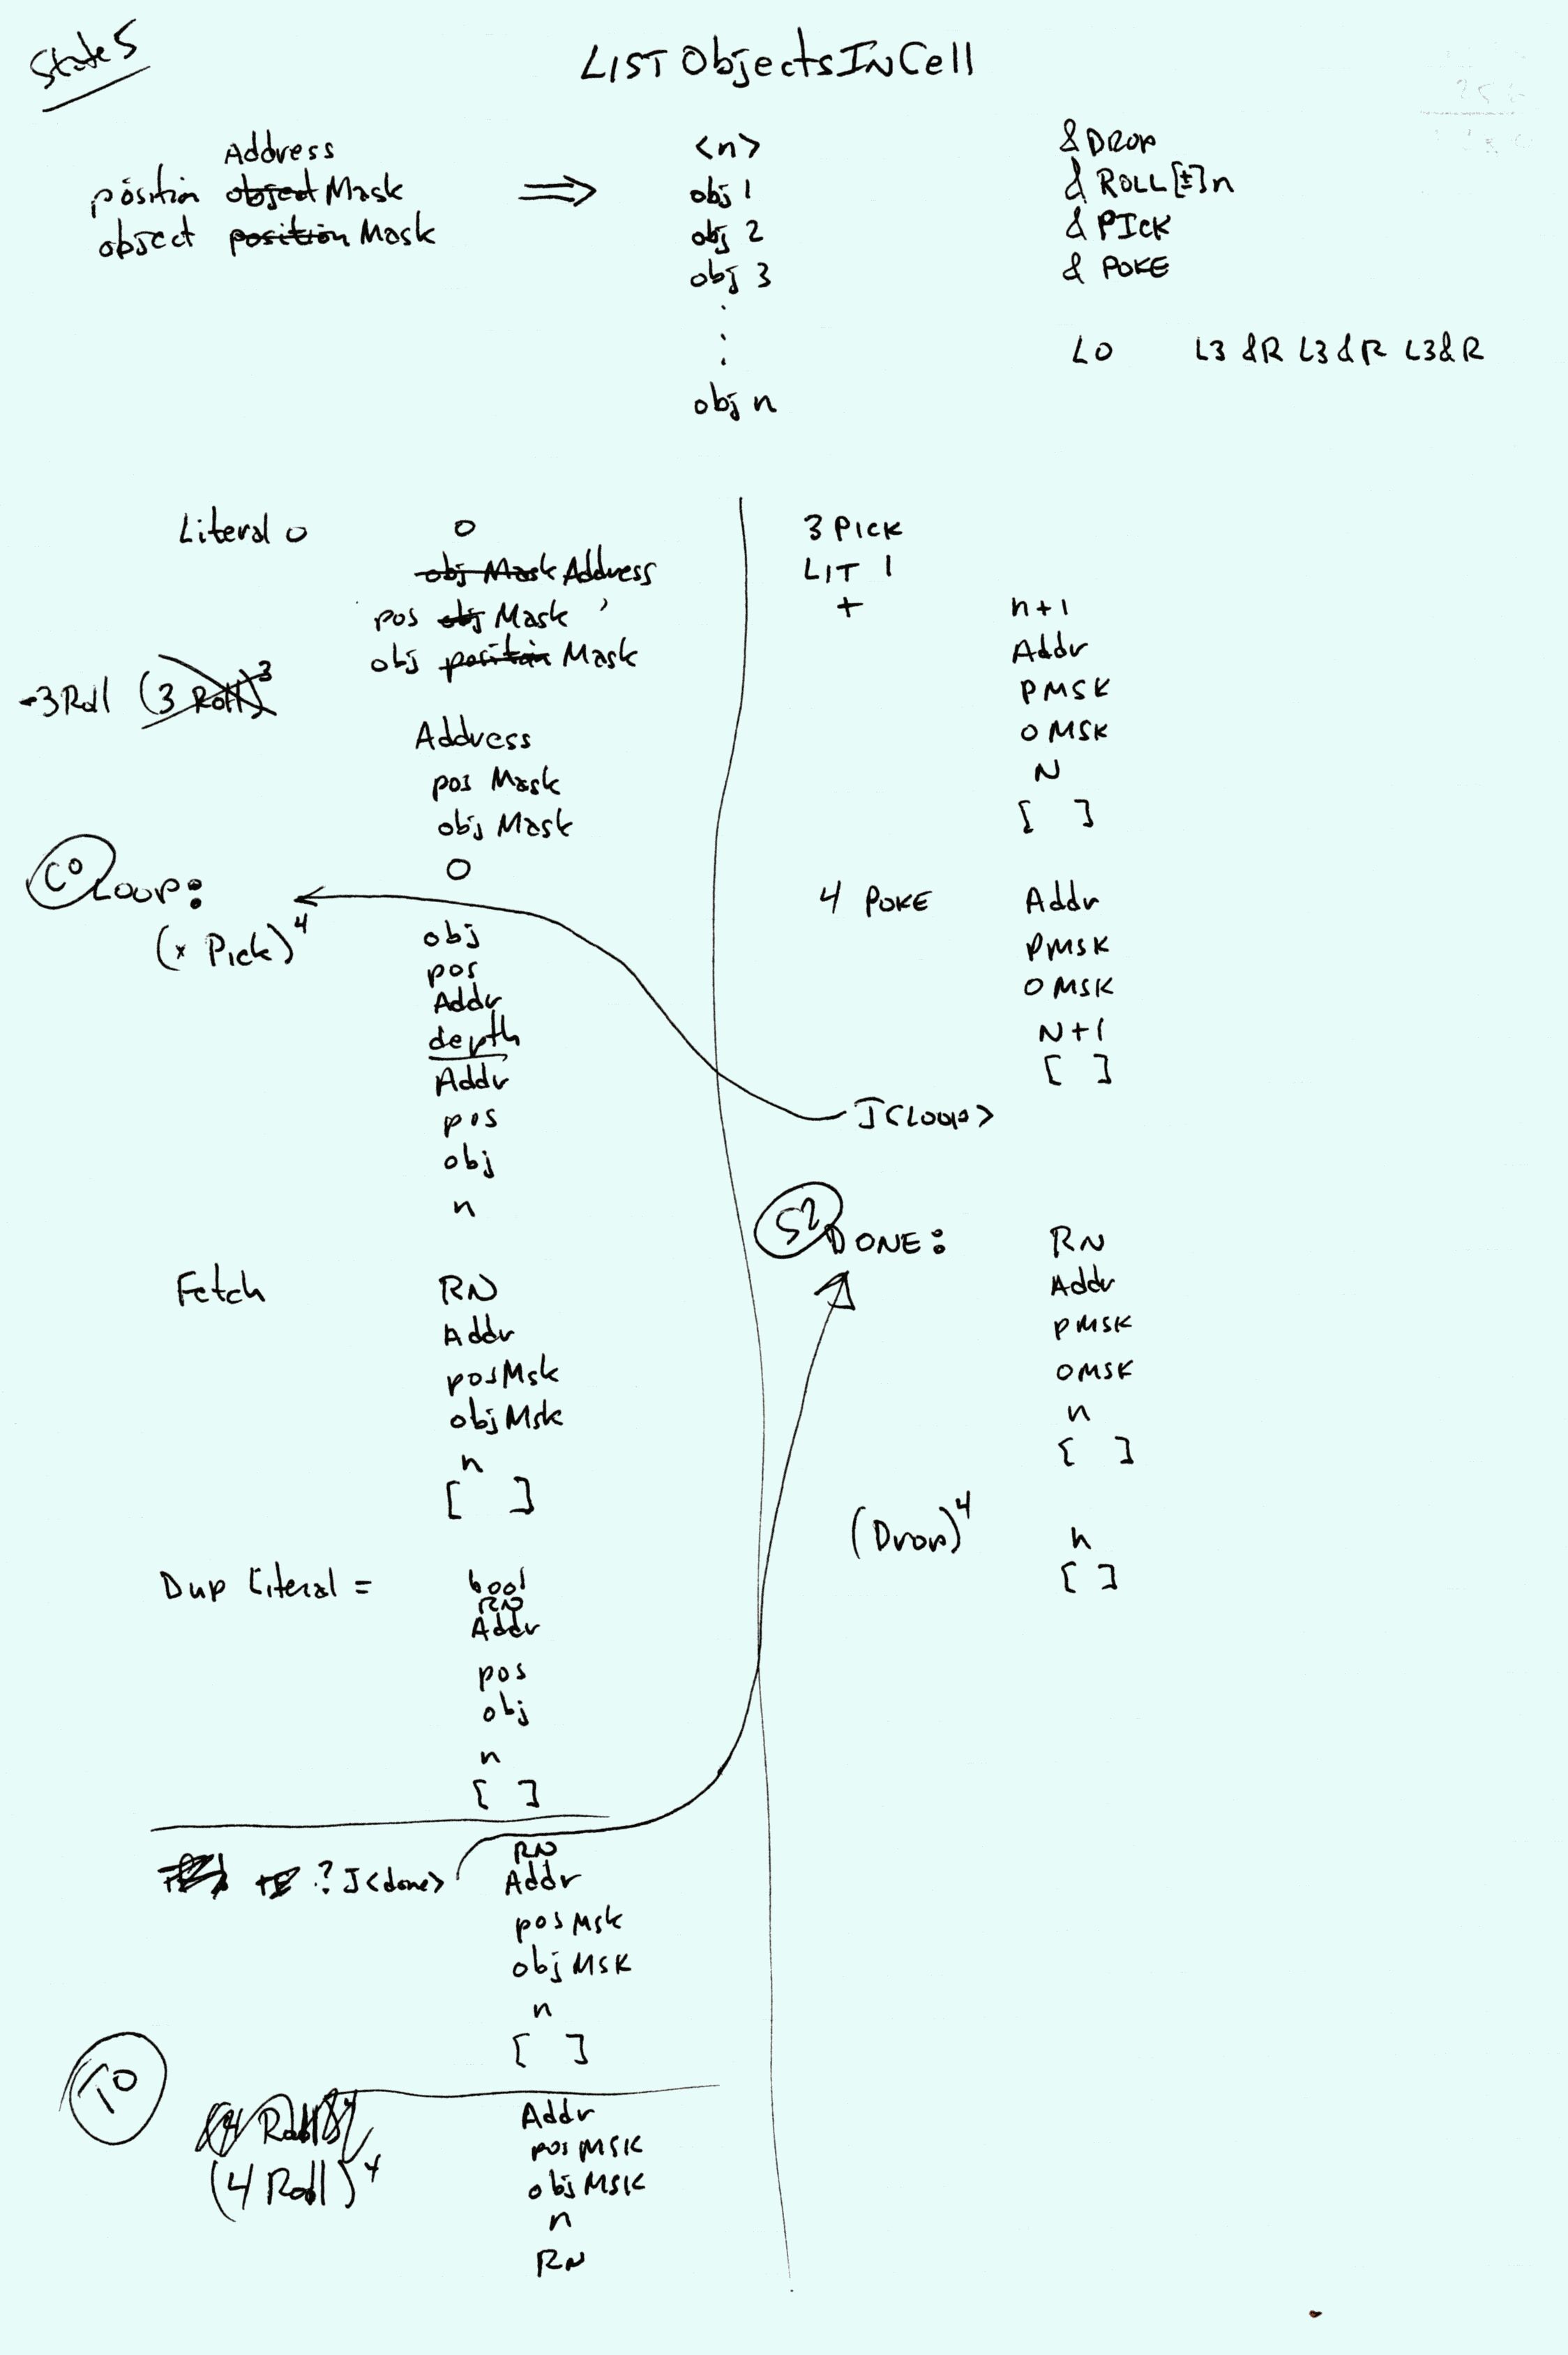 State 5
LIST ObjectsInCell
Address
position object Mask
object position Mask
⇒
<n>
obj 1
obj 2
obj 3
.
.
.
obj n
& DROP
& ROLL [±] n
& PICK
& POKE
L0 L3 &R L3 &R L3 &R
Literal 0
0
obj Mask Address
pos obj Mask
obj position Mask
-3 Roll (3 Roll)3
Address
pos Mask
obj Mask
0
C0 Loop:
(x Pick)4
obj
pos
Addr
depth
Addr
pos
obj
n
Fetch
RN
Addr
posMsk
objMsk
n
[ ]
Dup Literal =
bool
RN
Addr
pos
obj
n
[ ]
? J<done>
RN
Addr
posMsk
objMSK
n
[ ]
T0
(4 Roll)4
Addr
posMSK
objMSK
n
RN
3 PICK
LIT 1
+
n+1
Addr
PMSK
OMSK
N
[ ]
4 POKE
Addr
PMSK
OMSK
N+1
[ ]
J<Loop>
S2 DONE:
RN
Addr
PMSK
OMSK
n
[ ]
(Drop)4
n
[ ]